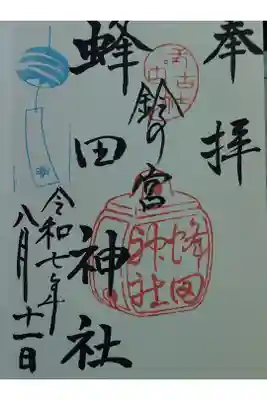 奉拝
鈴の宮
蜂田神社
蜂田
神社
令和七年
八月十一日